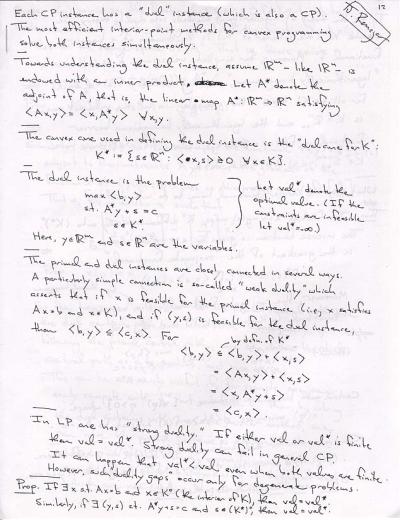 Each CP instance has a "dual" instance (which is also a CP).
12
The most efficient interior-point methods for convex programming
solve both instances simultaneously.
J. Renegar
Towards understanding the dual instance, assume ℝᵐ - like ℝⁿ - is
endowed with an inner product. Let A* denote the
adjoint of A, that is, the linear map A*: ℝᵐ → ℝⁿ satisfying
<Ax,y> = <x,A*y> ∀x,y.
The convex cone used in defining the dual instance is the "dual cone for K":
K* := {s∈ℝⁿ: <x,s> ≥ 0 ∀x∈K}.
The dual instance is the problem
max <b,y>
st. A*y+s = c
s∈K*
Let val* denote the
optimal value. (If the
constraints are infeasible
let val* = -∞.)
Here, y∈ℝᵐ and s∈ℝⁿ are the variables.
The primal and dual instances are closely connected in several ways.
A particularly simple connection is so-called "weak duality" which
asserts that if x is feasible for the primal instance (i.e., x satisfies
Ax=b and x∈K), and if (y,s) is feasible for the dual instance,
then <b,y> ≤ <c,x>. For
by defn of K*
<b,y> ≤ <b,y> + <x,s>
= <Ax,y> + <x,s>
= <x,A*y+s>
= <c,x>.
In LP one has "strong duality." If either val or val* is finite
then val = val*. Strong duality can fail in general CP.
It can happen that val* < val even when both values are finite.
However, such "duality gaps" occur only for degenerate problems.
Prop. If ∃x st. Ax=b and x∈K° (the interior of K), then val = val*.
Similarly, if ∃(y,s) st. A*y+s=c and s∈(K*)°, then val = val*.